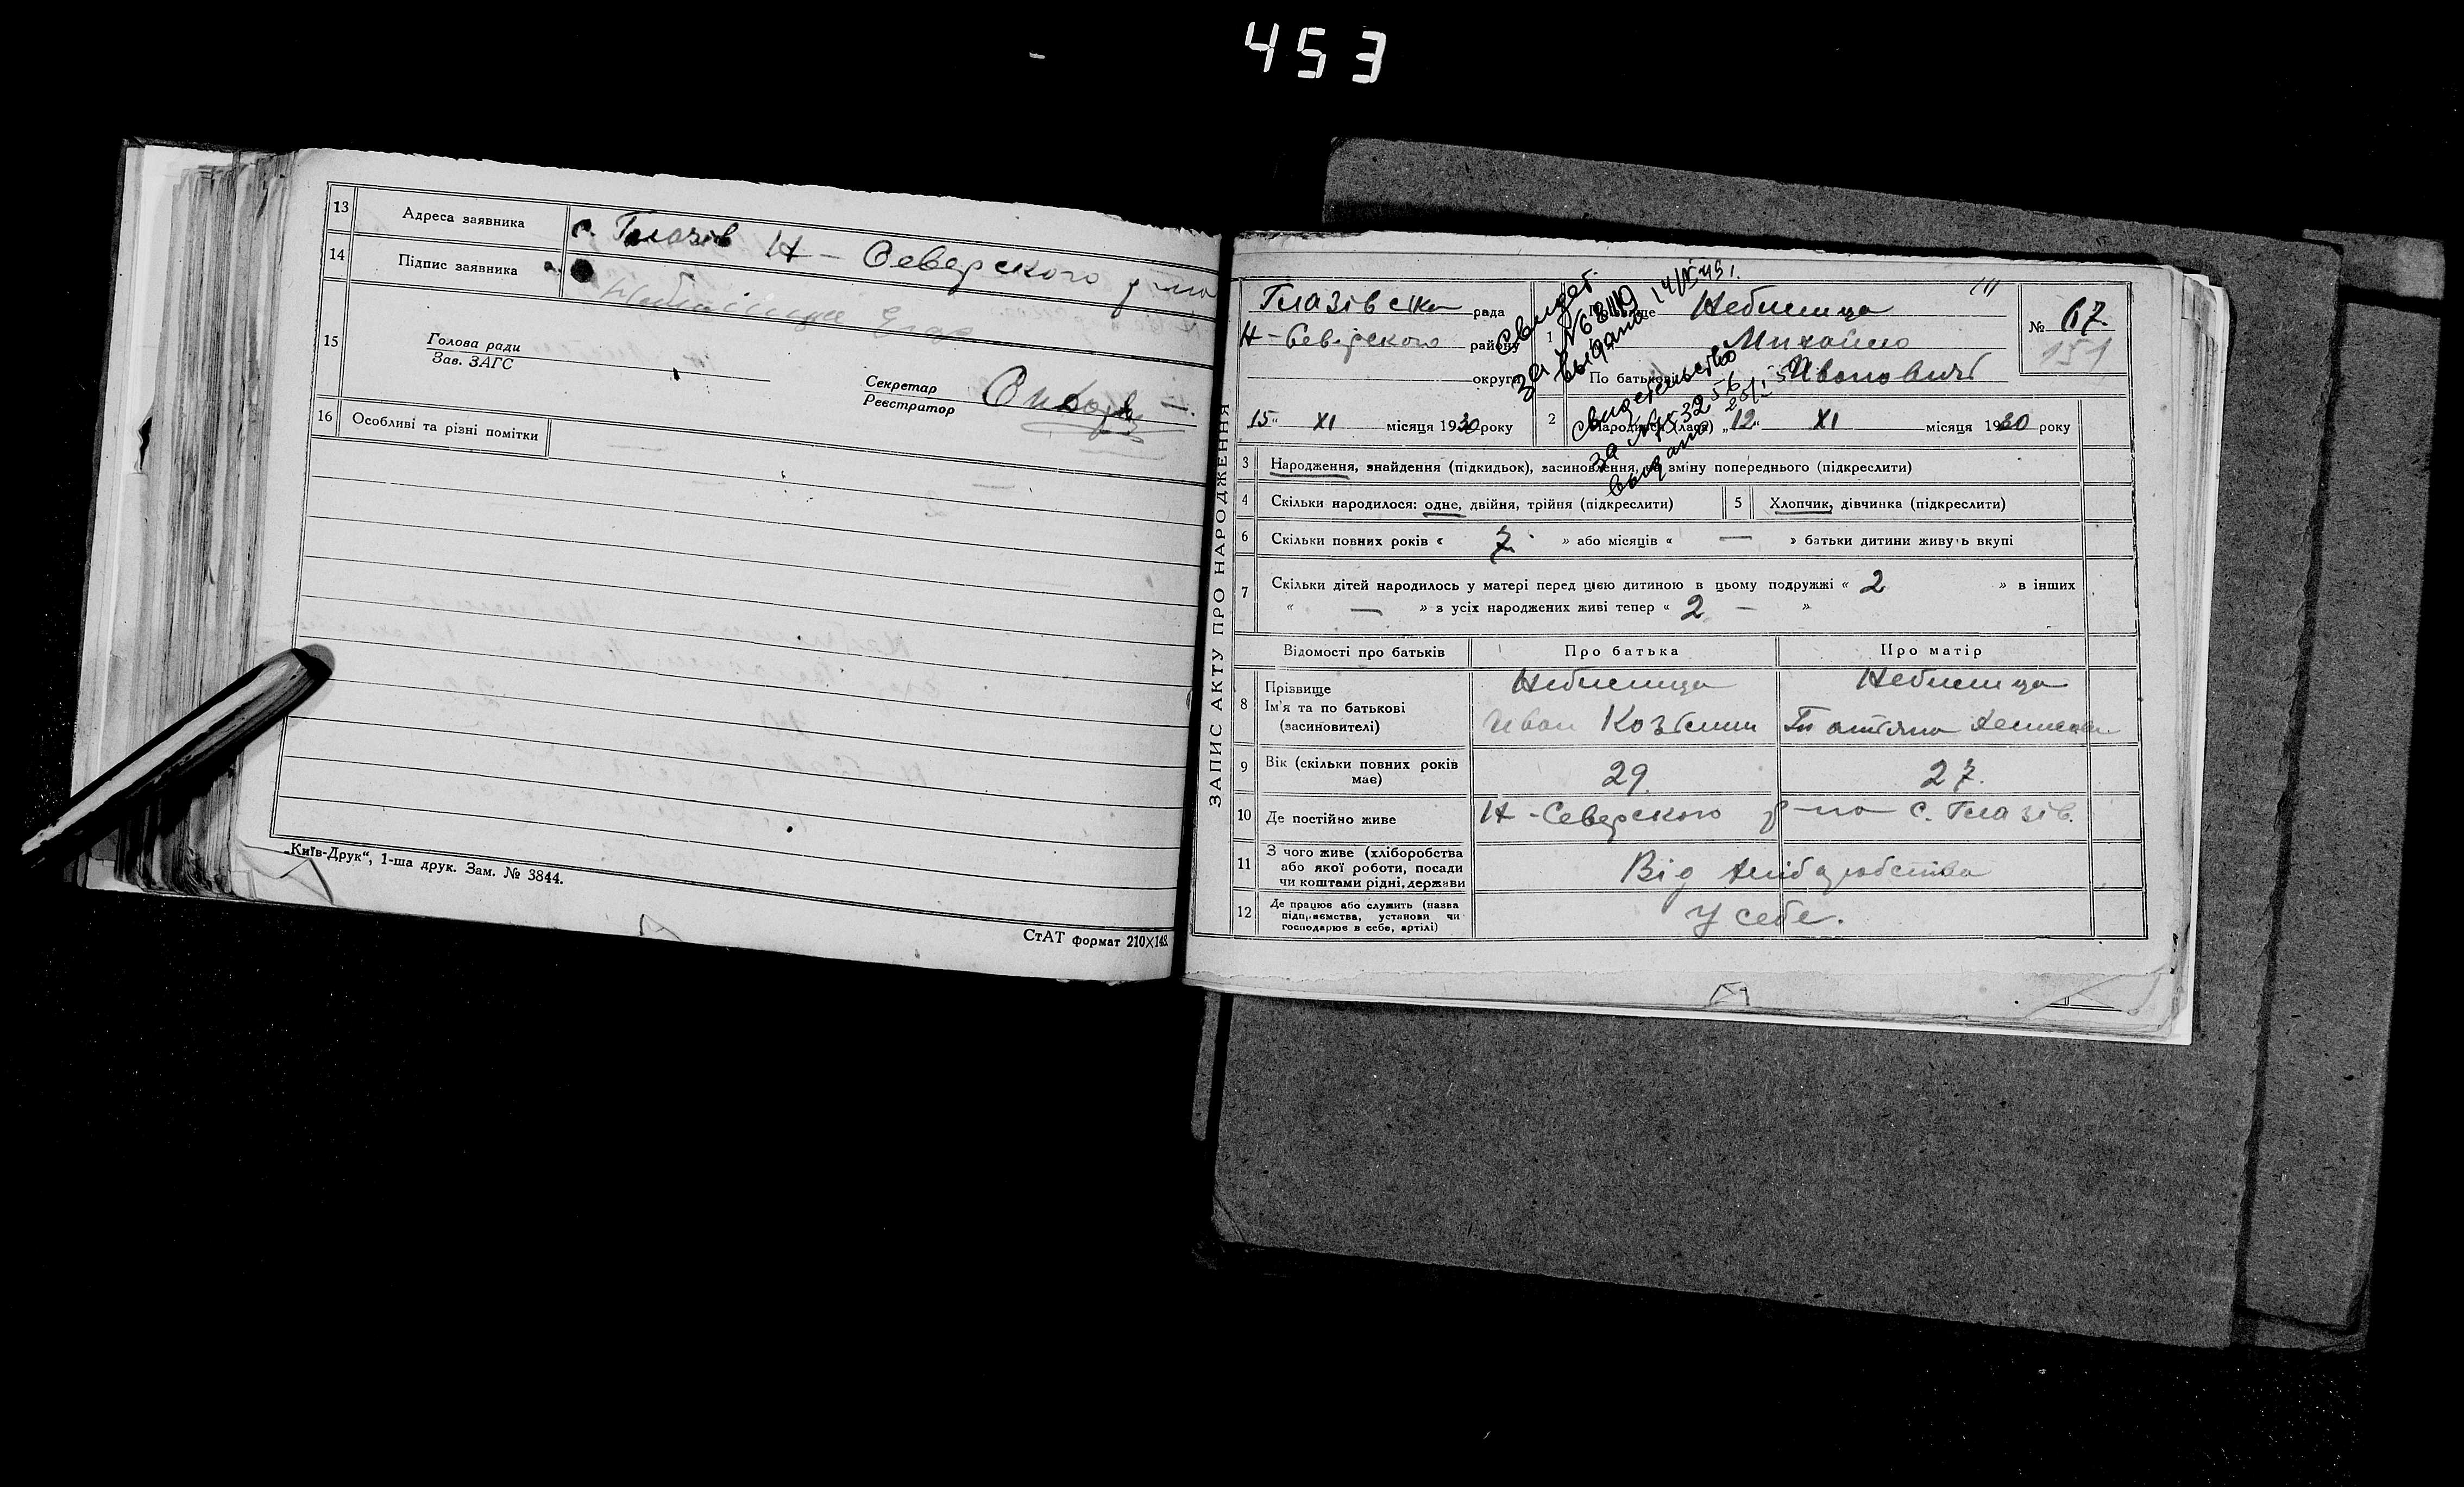 453
13 Адреса заявника с. Глазів Н-Северского р-на
14 Підпис заявника
15 Голова ради
Зав. ЗАГС
Секретар
Реєстратор
16 Особливі та різні помітки
„Київ-Друк“, 1-ша друк. Зам. № 3844.
СтАТ формат 210×148.
ЗАПИС АКТУ ПРО НАРОДЖЕННЯ
Глазівська рада
Н-Северского району
округи
15 " XI місяця 1930 року
Свидет.
за № 68119
выдано 14/IV 45 г.
1 Небилица
Михайло
По батькові Иванович
№ 67
151
Свидетельство
выдано
2 Народився (лася) „12“ XI місяця 1930 року
3 Народження, знайдення (підкидьок), засиновлення, на зміну попереднього (підкреслити)
4 Скільки народилося: одне, двійня, трійня (підкреслити) 5 Хлопчик, дівчинка (підкреслити)
6 Скільки повних років « 7 » або місяців « — » батьки дитини живуть вкупі
7 Скільки дітей народилось у матері перед цією дитиною в цьому подружжі « 2 » в інших
« — » з усіх народжених живі тепер « 2 — »
Відомості про батьків Про батька Про матір
8 Прізвище Небилица Небилица
Ім'я та по батькові
(засиновителі) Иван Татяна
9 Вік (скільки повних років
має) 29. 27.
10 Де постійно живе Н-Северского р-на с. Глазів.
11 З чого живе (хліборобства
або якої роботи, посади
чи коштами рідні, держави Від хліборобства
12 Де працює або служить (назва
підприємства, установи чи
господарює в себе, артілі) У себе.